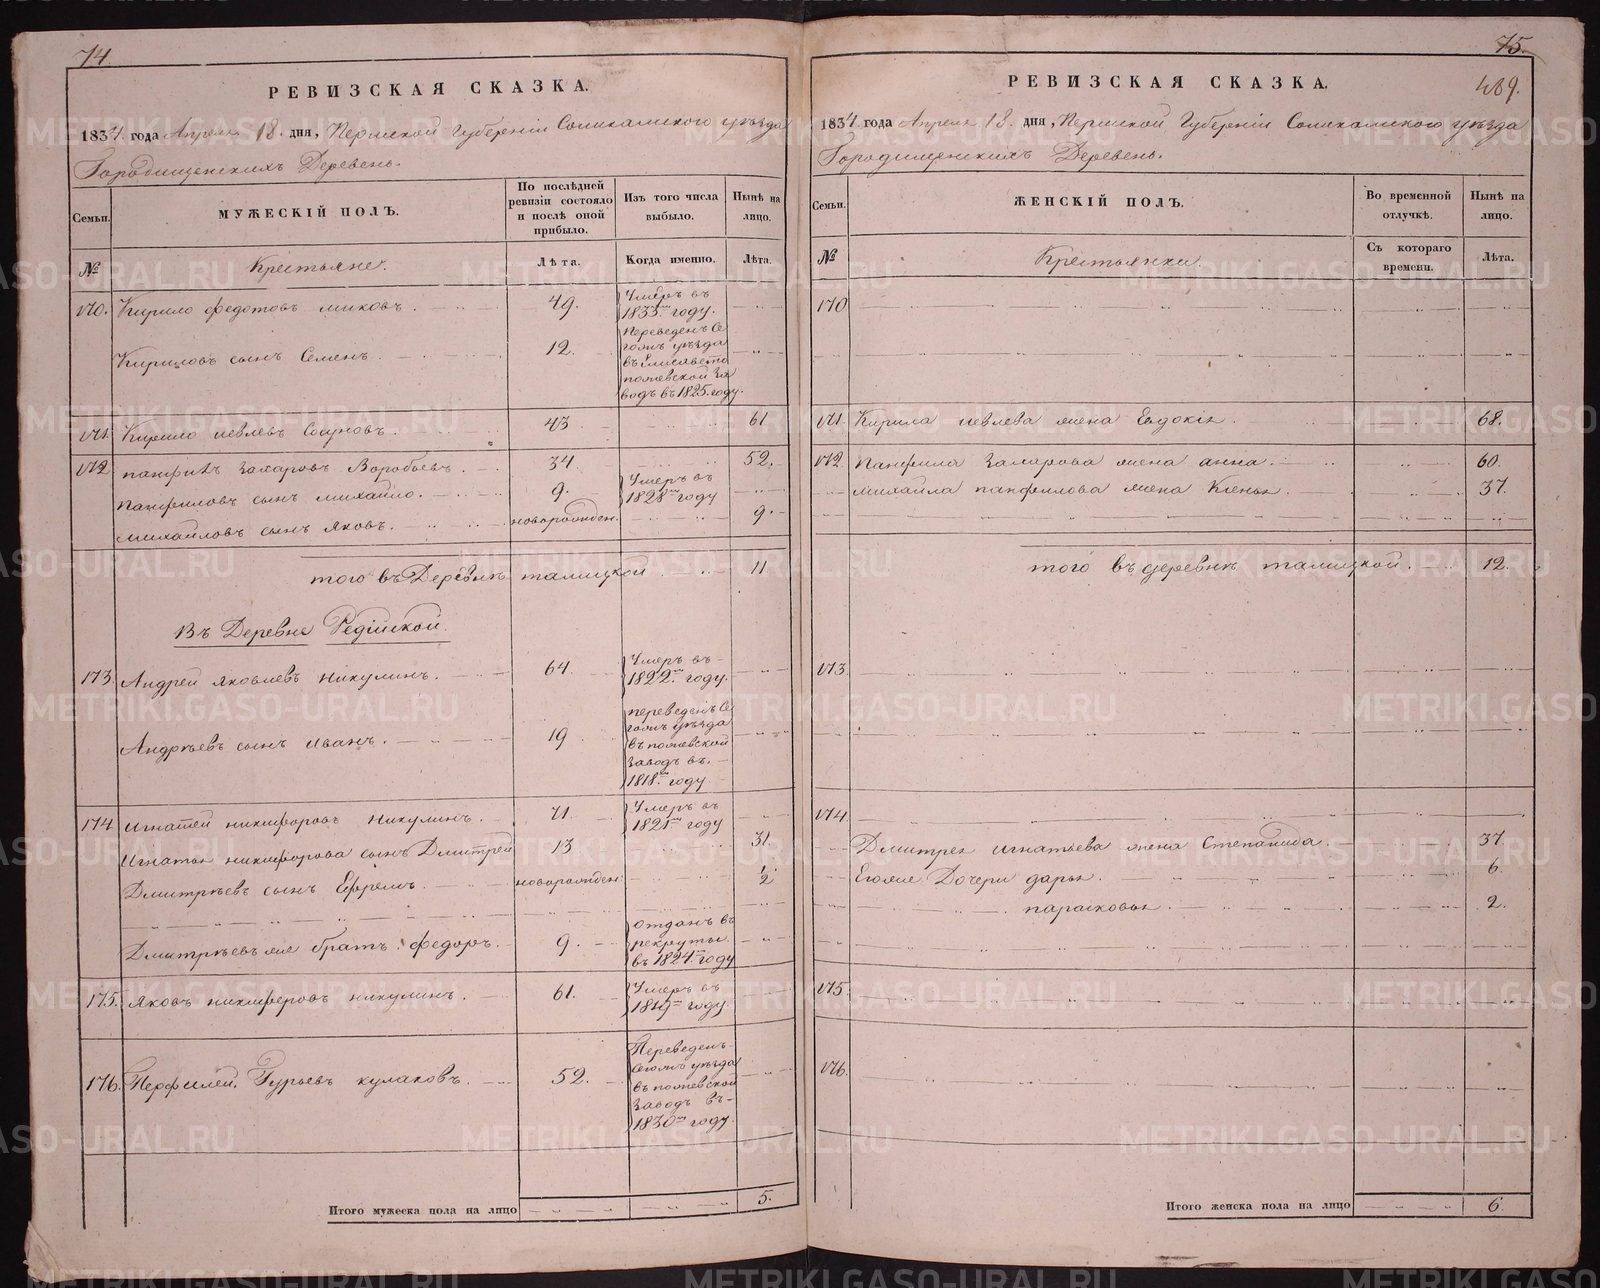 74
РЕВИЗСКАЯ СКАЗКА.
1834. года Апреля 18. дня, Пермской Губерніи Соликамскаго уѣзда
Городищенскихъ Деревень.
Семьи.
МУЖЕСКІЙ ПОЛЪ.
По послѣдней ревизіи состояло и послѣ оной прибыло.
Изъ того числа выбыло.
Нынѣ на лицо.
№
Крестьяне.
Лѣта.
Когда именно.
Лѣта.
170. Кирило Федотовъ 49. Умеръ въ
1833мъ году.
Кириловъ сынъ Семенъ. 12. Переведенъ Се
гожъ уѣзда
въ Елисавето
пожевской За
водъ въ 1825. году.
171. Кирило Иевлевъ 43 61
172 Панфилъ Захаровъ Воробьевъ. 34 52.
Панфиловъ сынъ Михайло. 9. Умеръ въ
1828мъ году
Михайловъ сынъ Яковъ. новорожден. 9.
того въ Деревнѣ талицкой 11
Въ Деревне
173. Андрей Яковлевъ Никулинъ. 64 Умеръ въ
1822мъ году.
Андрѣевъ сынъ Иванъ. 19 переведенъ Се
гожъ уѣзда
въ пожевской
Заводъ въ
1818мъ году
174 Игнатей Никифоровъ Никулинъ. 71. Умеръ въ
1821мъ году
Игнатья Никифорова сынъ Дмитрей 13 31.
Дмитрѣевъ сынъ Ефремъ. новорожден. ½
Дмитрѣевъ же братъ Федоръ. 9. Отданъ въ
рекруты
въ 1824мъ году
175. Яковъ Никифоровъ Никулинъ. 61. Умеръ въ
1819мъ году
176. Перфилей Гурьевъ Кулаковъ. 52. Переведенъ
Сегожъ уѣзда
въ пожевской
Заводъ въ
1830мъ году.
Итого мужеска пола на лицо 5.
75.
489.
РЕВИЗСКАЯ СКАЗКА.
1834 года Апреля 18. дня, Пермской Губерніи Соликамскаго уѣзда
Городищенскихъ Деревень.
Семьи.
ЖЕНСКІЙ ПОЛЪ.
Во временной отлучкѣ.
Нынѣ на лицо.
№
Крестьянки.
Съ котораго времени.
Лѣта.
170
171. Кирила Иевлева жена Евдокія 68.
172. Панфила Захарова жена Анна. 60.
Михайла Панфилова жена 37.
того въ деревнѣ талицкой. 12.
173.
174
Дмитрея Игнатьева жена Степанида. 37.
Егоже Дочери Дарья. 6.
парасковья 2.
175.
176.
Итого женска пола на лицо 6.
METRIKI.GASO-URAL.RU